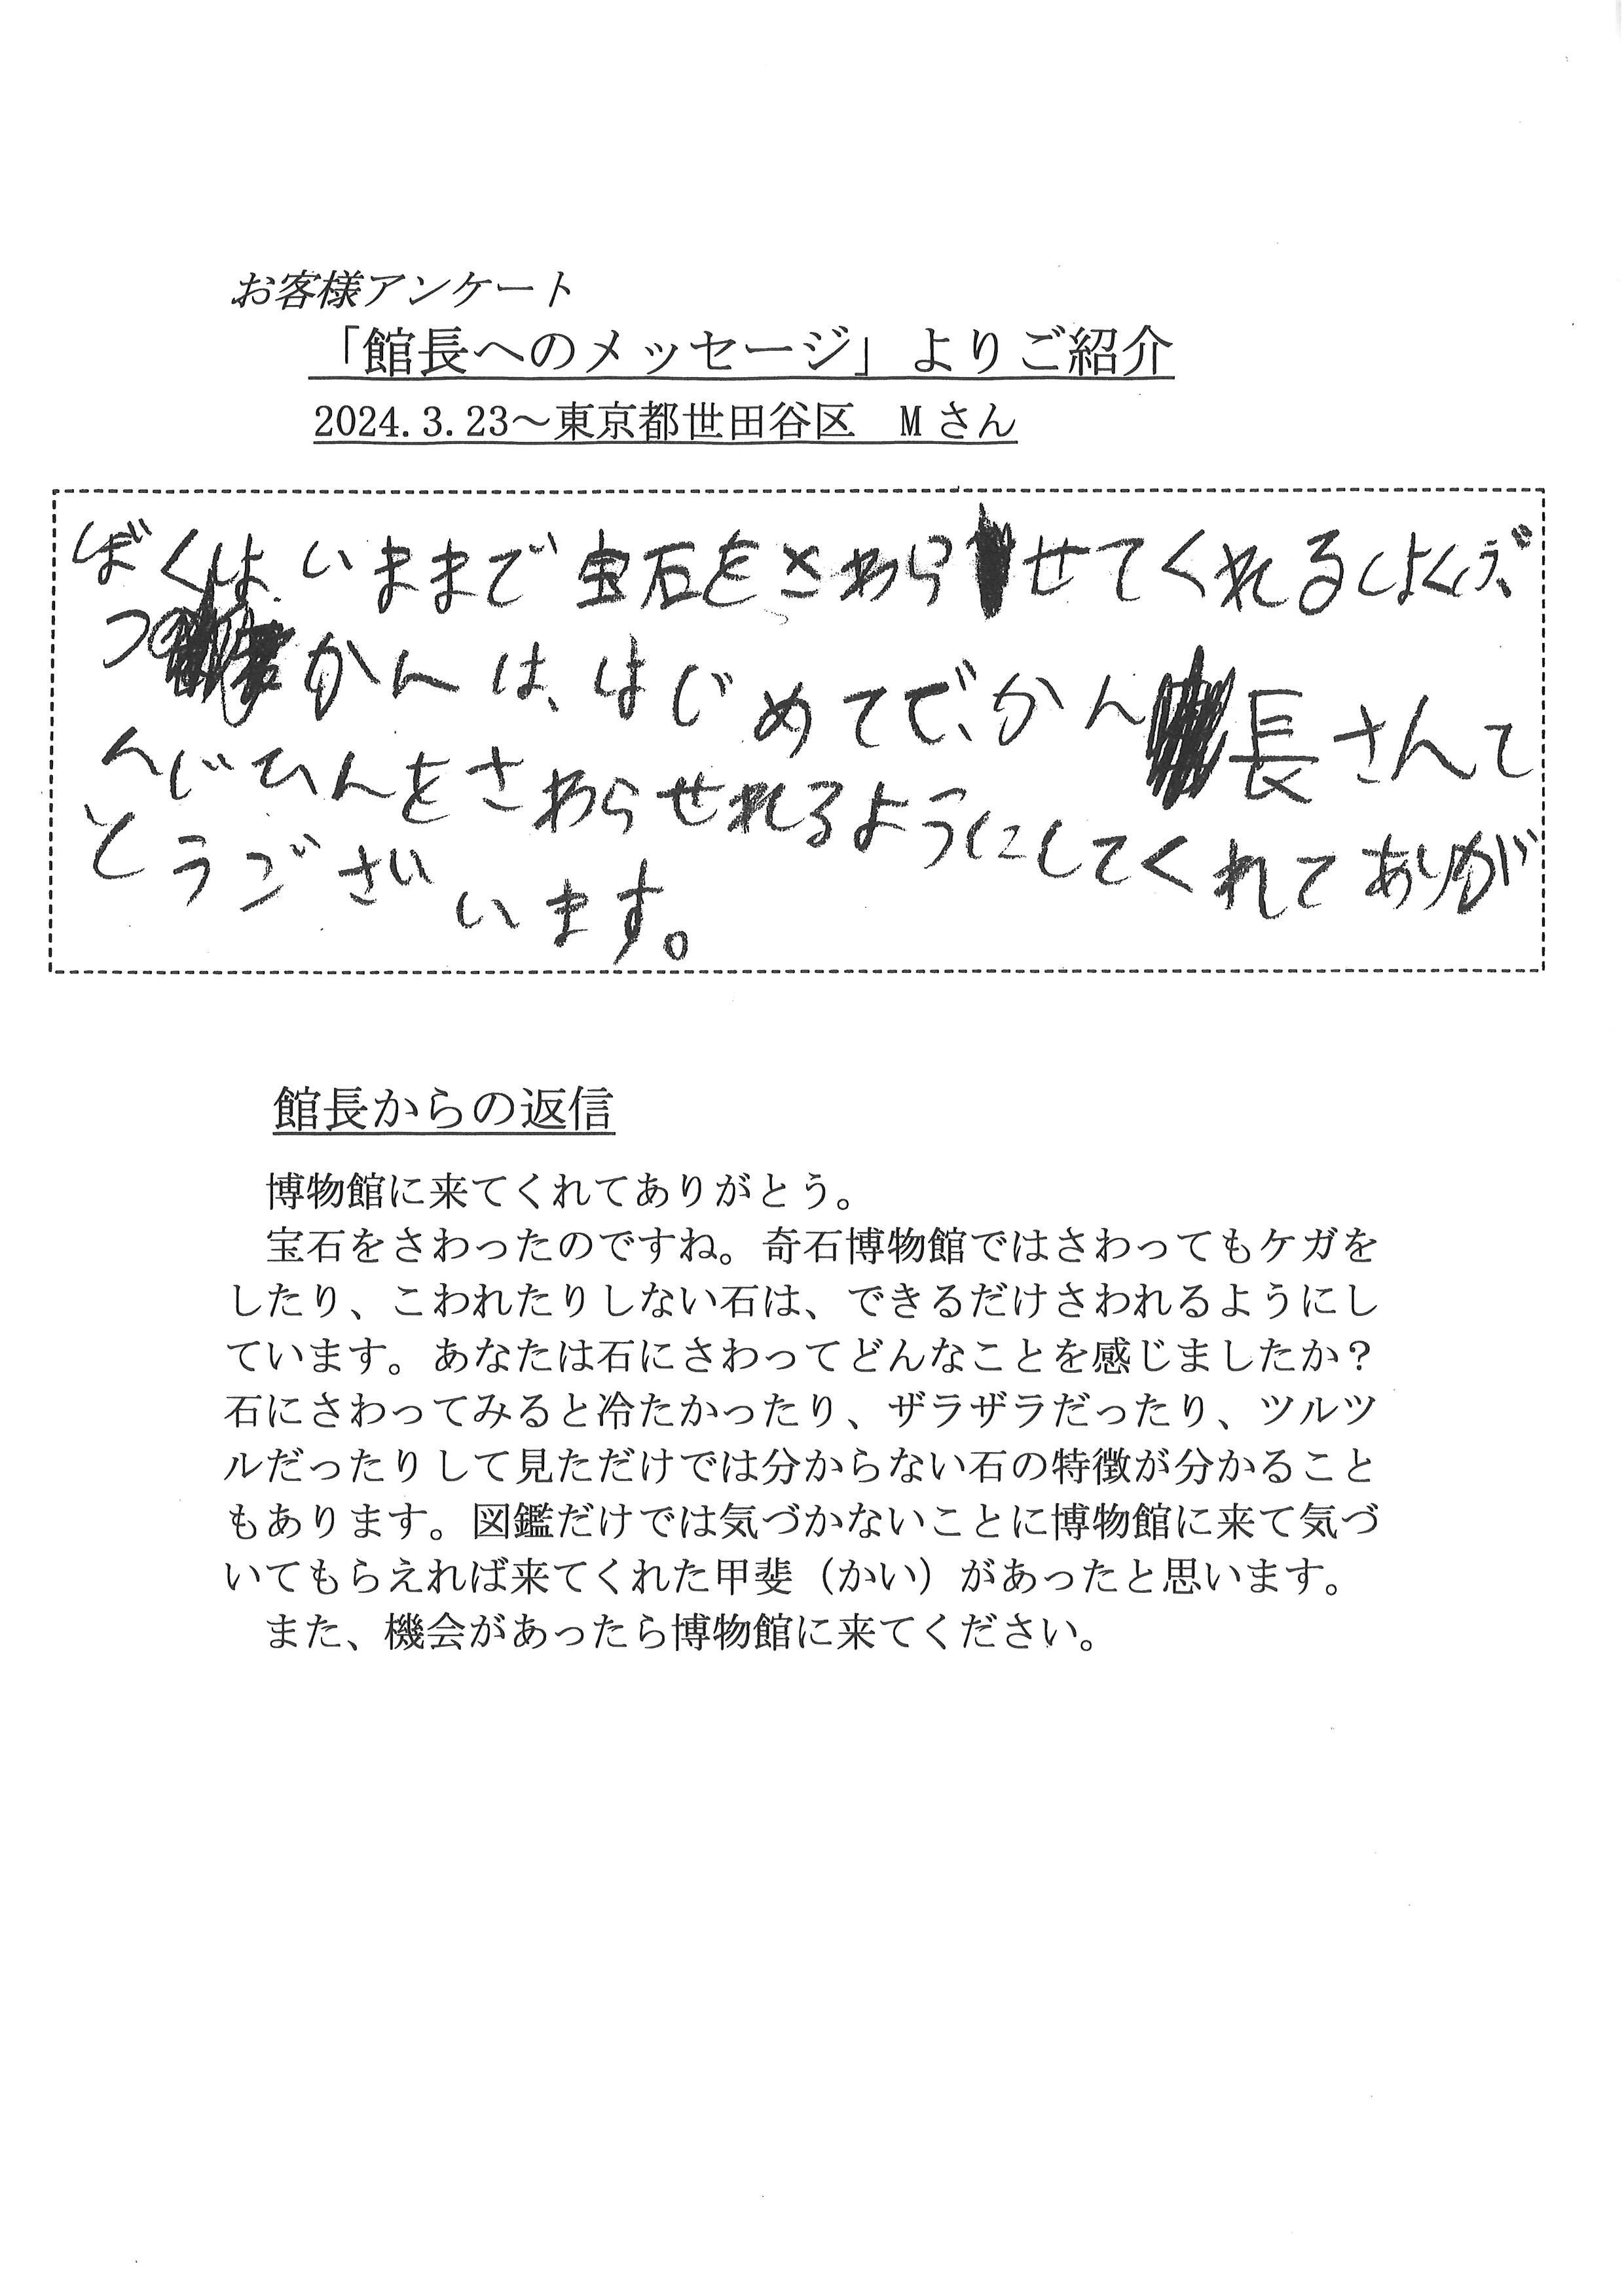 お客様アンケート
「館長へのメッセージ」よりご紹介
2024.3.23～東京都世田谷区　Mさん
ぼくは、いままで宝石をさわらせてくれるはくぶ、
つかんは、はじめてで、かん長さんて
んじひんをさわらせれるようにしてくれてありが
とうございいます。
館長からの返信
博物館に来てくれてありがとう。
宝石をさわったのですね。奇石博物館ではさわってもケガを
したり、こわれたりしない石は、できるだけさわれるようにし
ています。あなたは石にさわってどんなことを感じましたか？
石にさわってみると冷たかったり、ザラザラだったり、ツルツ
ルだったりして見ただけでは分からない石の特徴が分かること
もあります。図鑑だけでは気づかないことに博物館に来て気づ
いてもらえれば来てくれた甲斐（かい）があったと思います。
また、機会があったら博物館に来てください。